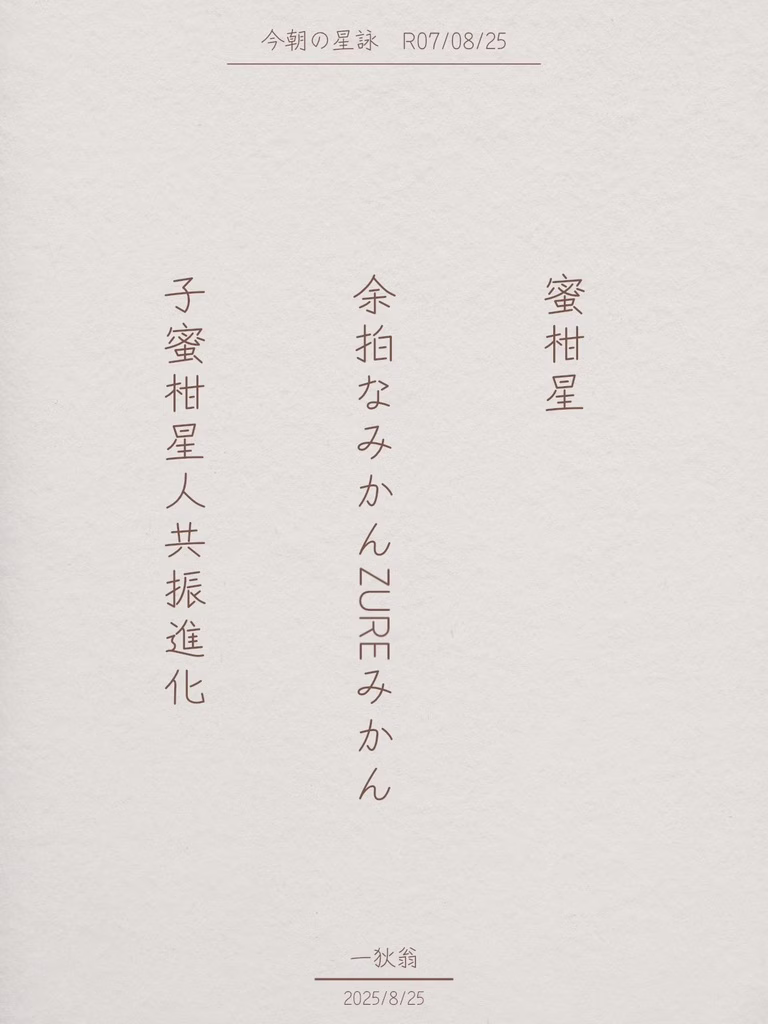 今朝の星詠　R07/08/25
蜜柑星
余拍なみかんZUREみかん
子蜜柑星人共振進化
一狄翁
2025/8/25